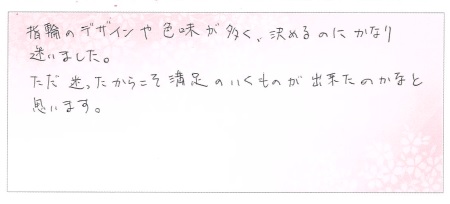 指輪のデザインや色味が多く、決めるのにかなり
迷いました。
ただ迷ったからこそ満足のいくものが出来たのかなと
思います。